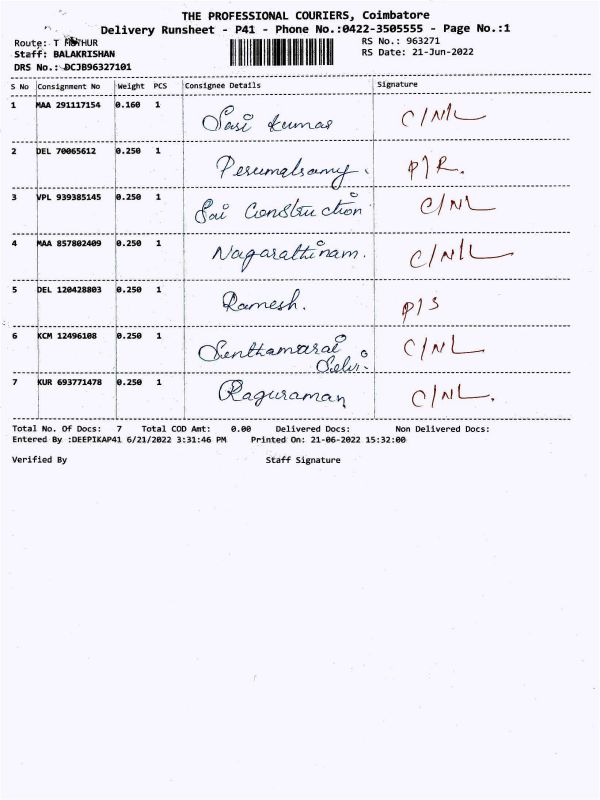 THE PROFESSIONAL COURIERS, Coimbatore
Delivery Runsheet - P41 - Phone No.:0422-3505555 - Page No.:1
Route: T HUR RS No.: 963271
Staff: BALAKRISHAN RS Date: 21-Jun-2022
DRS No.: DCJB96327101
S No Consignment No Weight PCS Consignee Details Signature
1 MAA 291117154 0.160 1 Sasi kumar C/N/L
2 DEL 70065612 0.250 1 Perumalsamy. P/R.
3 VPL 939385145 0.250 1 Sai Construction C/N/L
4 MAA 857802409 0.250 1 Nagarathinam. C/N/L
5 DEL 120428803 0.250 1 Ramesh. P/S
6 KCM 12496108 0.250 1 Senthamarai C/N/L
Selvi.
7 KUR 693771478 0.250 1 Raguraman C/N/L.
Total No. Of Docs: 7 Total COD Amt: 0.00 Delivered Docs: Non Delivered Docs:
Entered By :DEEPIKAP41 6/21/2022 3:31:46 PM Printed On: 21-06-2022 15:32:00
Verified By Staff Signature